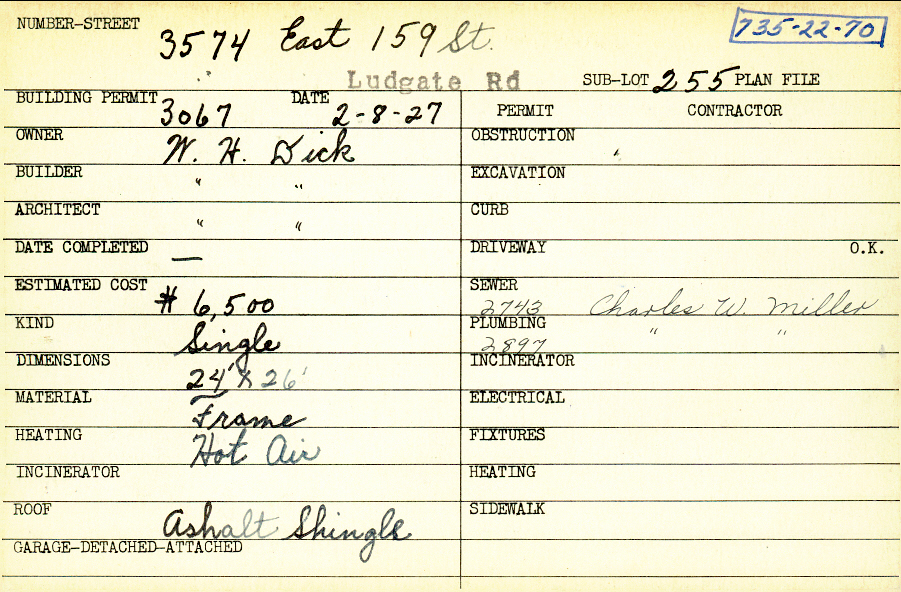 NUMBER-STREET 3574 East 159 St. 735-22-70
Ludgate Rd SUB-LOT 255 PLAN FILE
BUILDING PERMIT 3067 DATE 2-8-27
OWNER W. H. Dick
BUILDER " "
ARCHITECT " "
DATE COMPLETED —
ESTIMATED COST # 6,500
KIND Single
DIMENSIONS 24' X 26'
MATERIAL Frame
HEATING Hot Air
INCINERATOR
ROOF Ashalt Shingle
GARAGE-DETACHED-ATTACHED
PERMIT CONTRACTOR
OBSTRUCTION
EXCAVATION
CURB
DRIVEWAY O.K.
SEWER
2743 Charles W. Miller
PLUMBING " "
2897
INCINERATOR
ELECTRICAL
FIXTURES
HEATING
SIDEWALK